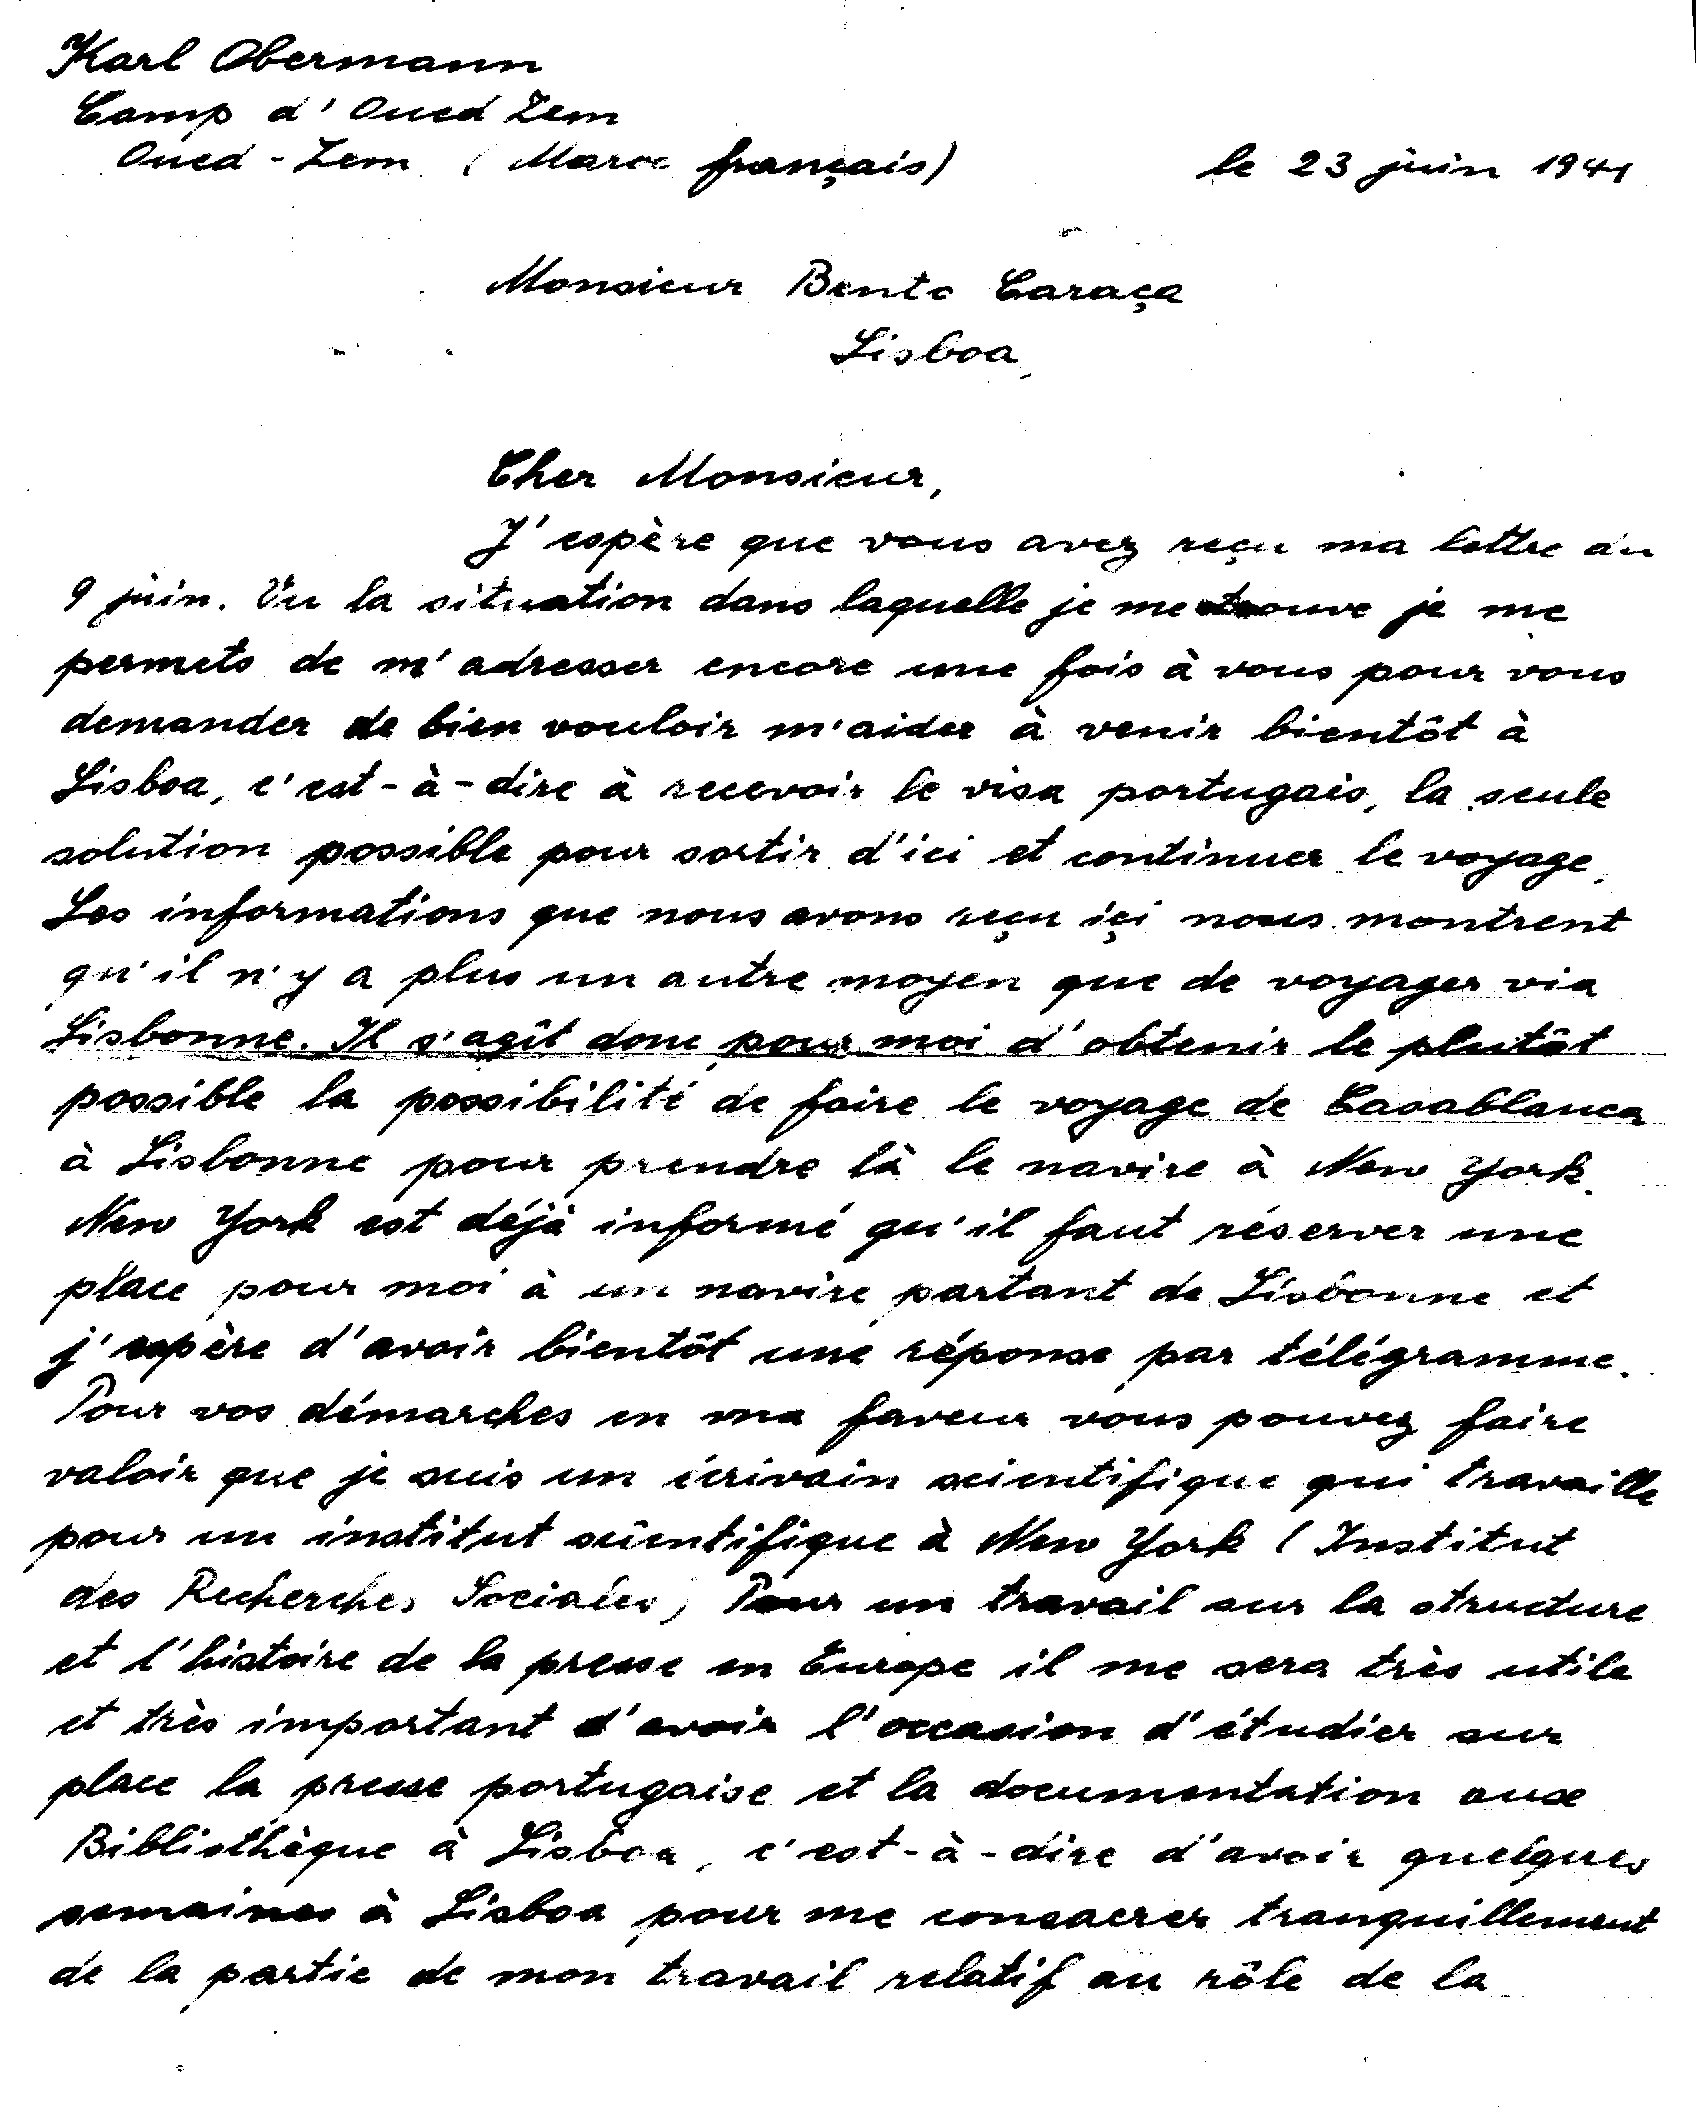 Karl Obermann
Camp d'Oued Zem
Oued-Zem (Maroc français)
le 23 juin 1941
Monsieur Bento Caraça
Lisboa,
Cher Monsieur,
J'espère que vous avez reçu ma lettre du
9 juin. Vu la situation dans laquelle je me trouve je me
permets de m'adresser encore une fois à vous pour vous
demander de bien vouloir m'aider à venir bientôt à
Lisboa, c'est-à-dire à recevoir le visa portugais, la seule
solution possible pour sortir d'ici et continuer le voyage.
Les informations que nous avons reçu içi nous montrent
qu'il n'y a plus un autre moyen que de voyager via
Lisbonne. Il s'agît donc pour moi d'obtenir le plutôt
possible la possibilité de faire le voyage de Casablanca
à Lisbonne pour prendre là le navire à New York.
New York est déjà informé qu'il faut réserver une
place pour moi à un navire partant de Lisbonne et
j'espère d'avoir bientôt une réponse par télégramme.
Pour vos démarches en ma faveur vous pouvez faire
valoir que je suis un écrivain scientifique qui travaille
pour un institut scientifique à New York (Institut
des Recherches Sociales) Pour un travail sur la structure
et l'histoire de la presse en Europe il me sera très utile
et très important d'avoir l'occasion d'étudier sur
place la presse portugaise et la documentation aux
Bibliothèque à Lisboa, c'est-à-dire d'avoir quelques
semaines à Lisboa pour me consacrer tranquillement
de la partie de mon travail relatif au rôle de la